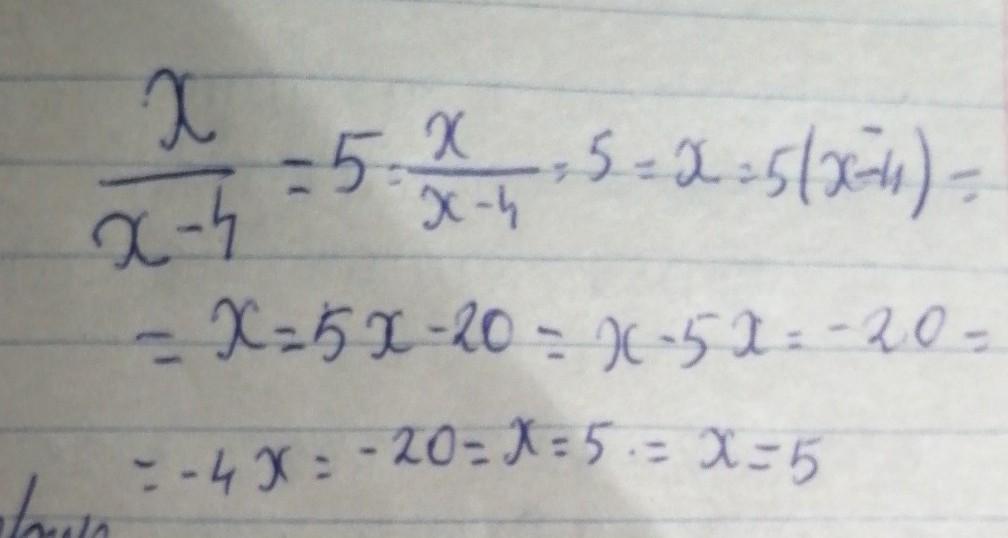 x/(x-4) = 5 = x/(x-4) = 5 = x = 5(x-4) =
= x = 5x - 20 = x - 5x = -20 =
= -4x = -20 = x = 5 . = x = 5